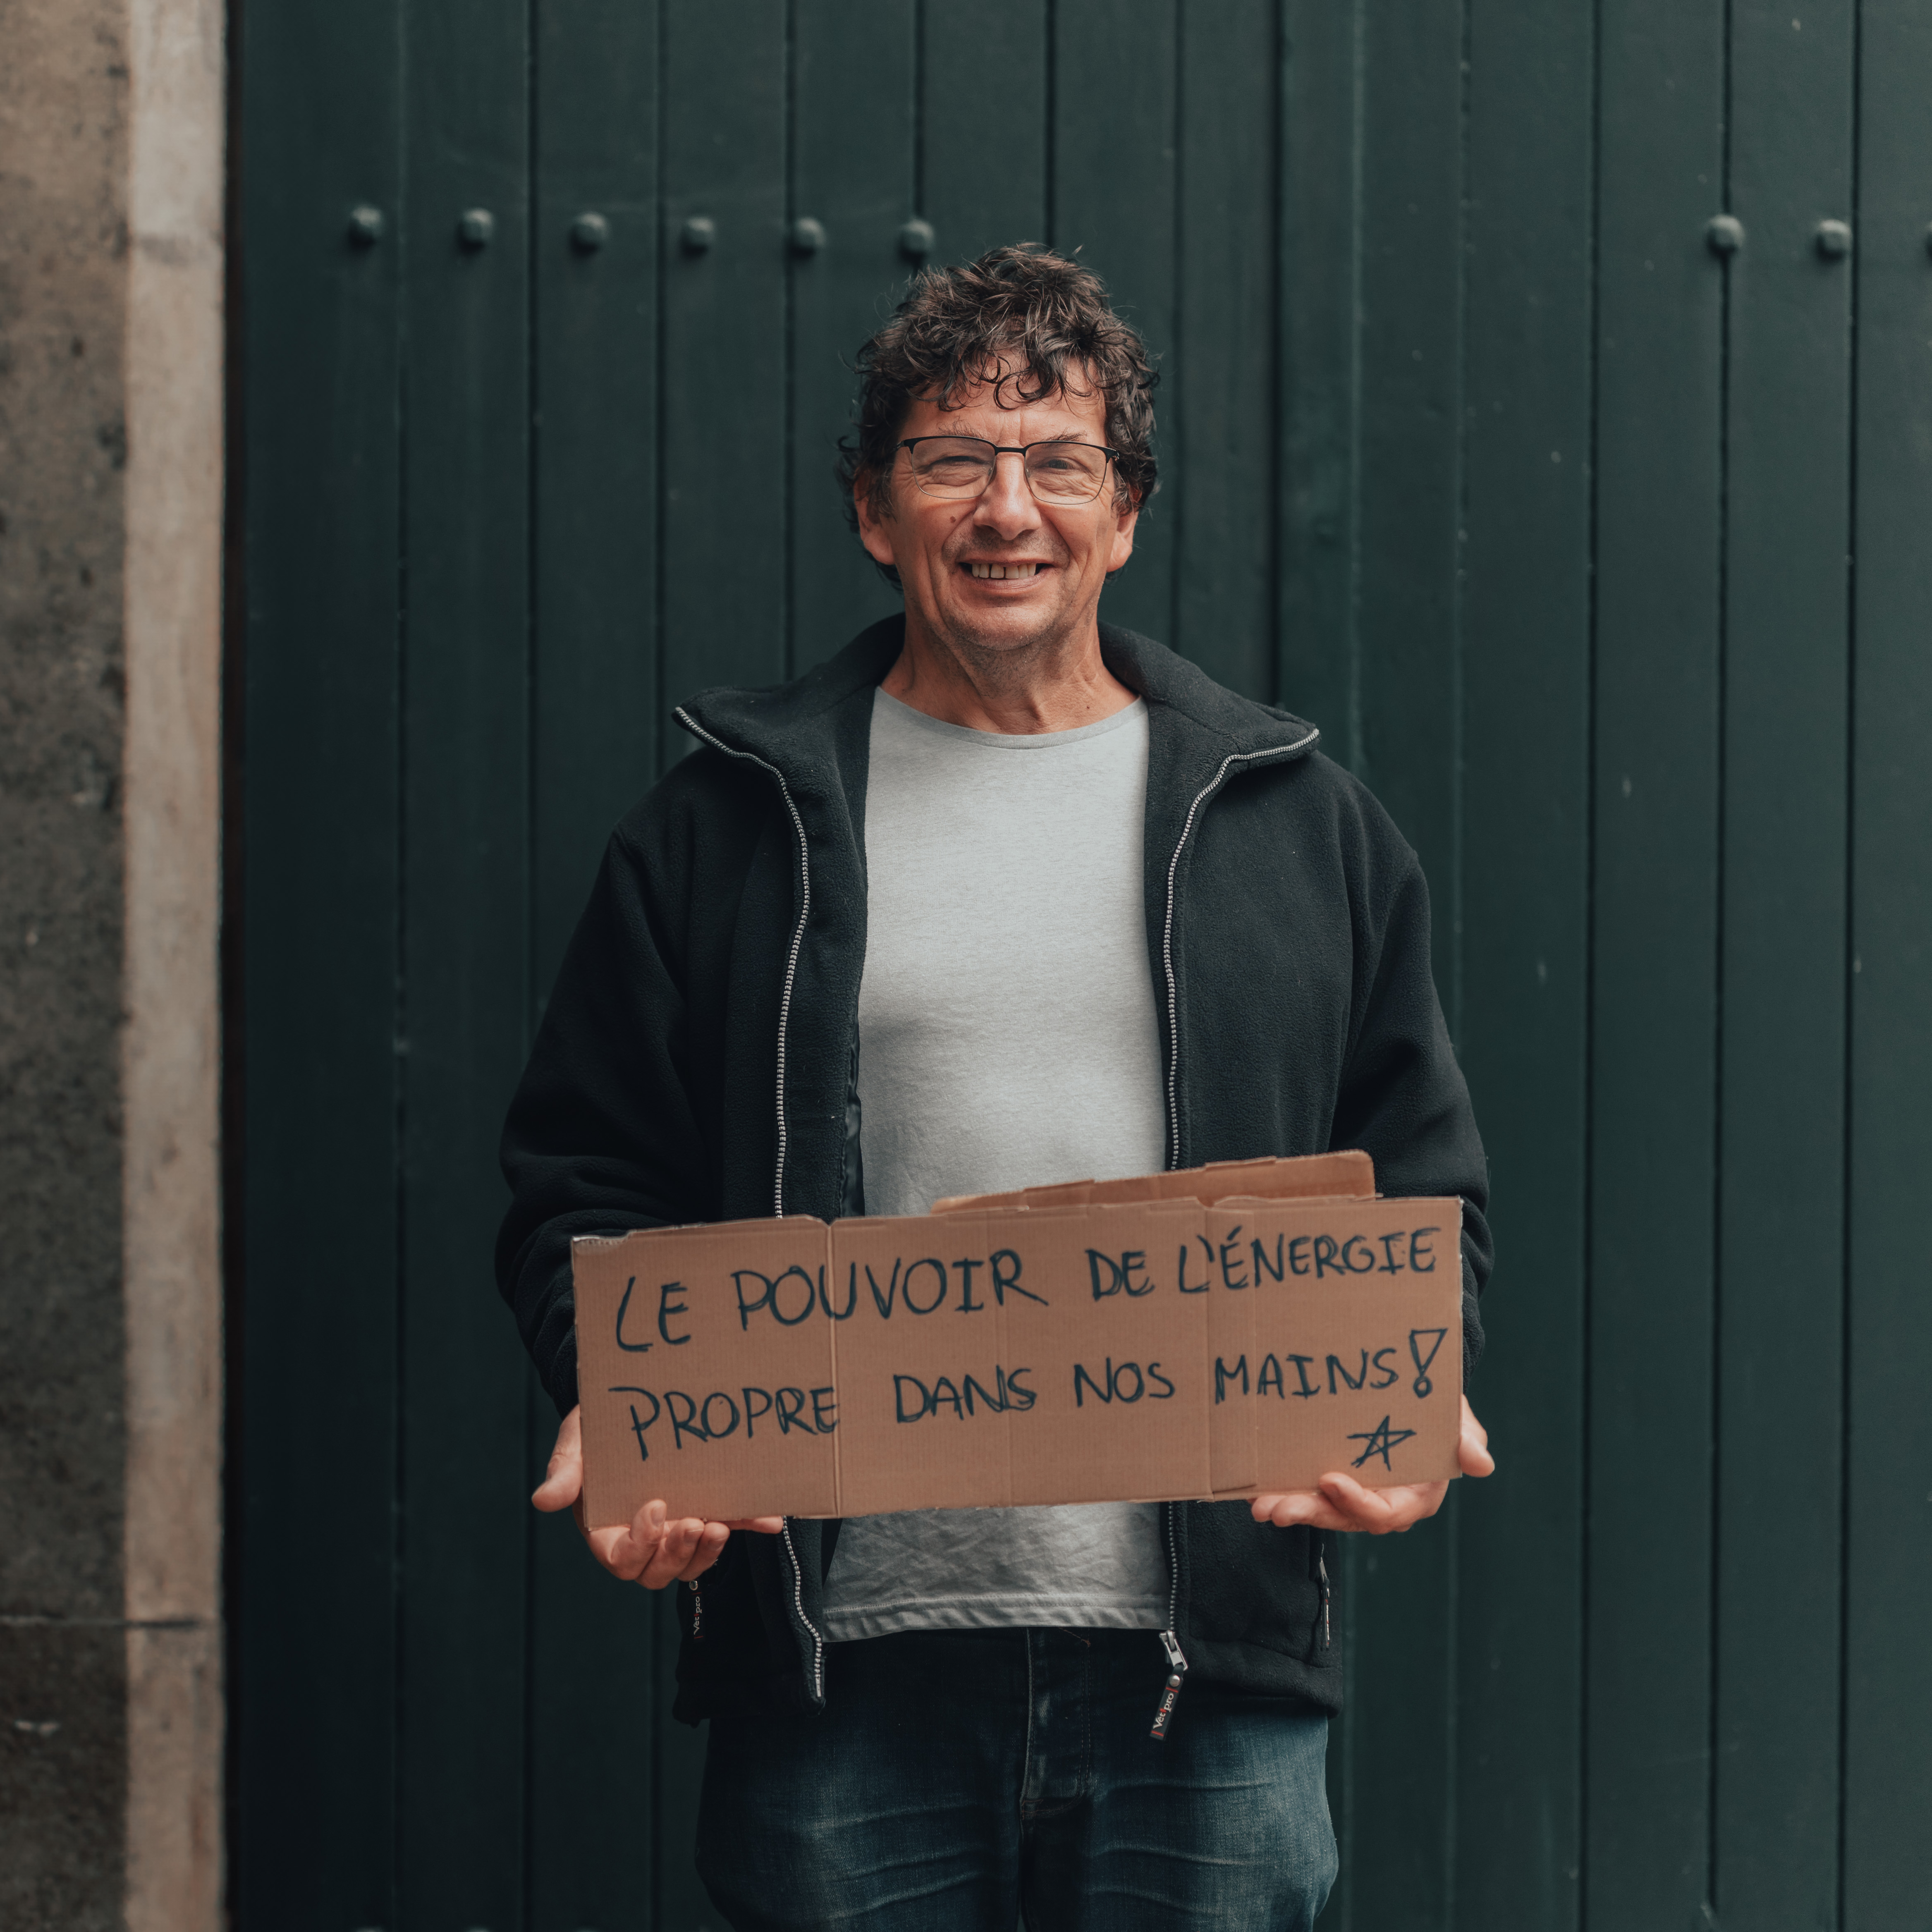 LE POUVOIR DE L'ÉNERGIE
PROPRE DANS NOS MAINS!
Vetipro
Vetipro